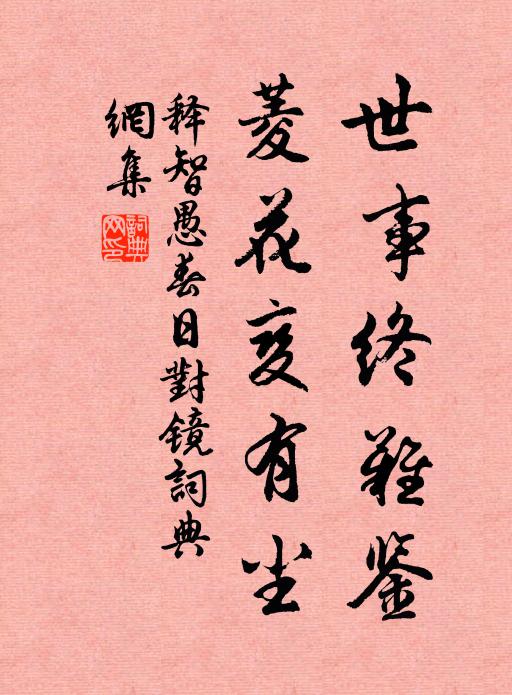 世事终難鉴
菱花变有尘
释智愚春日對镜詞典
網集
詞典
网印